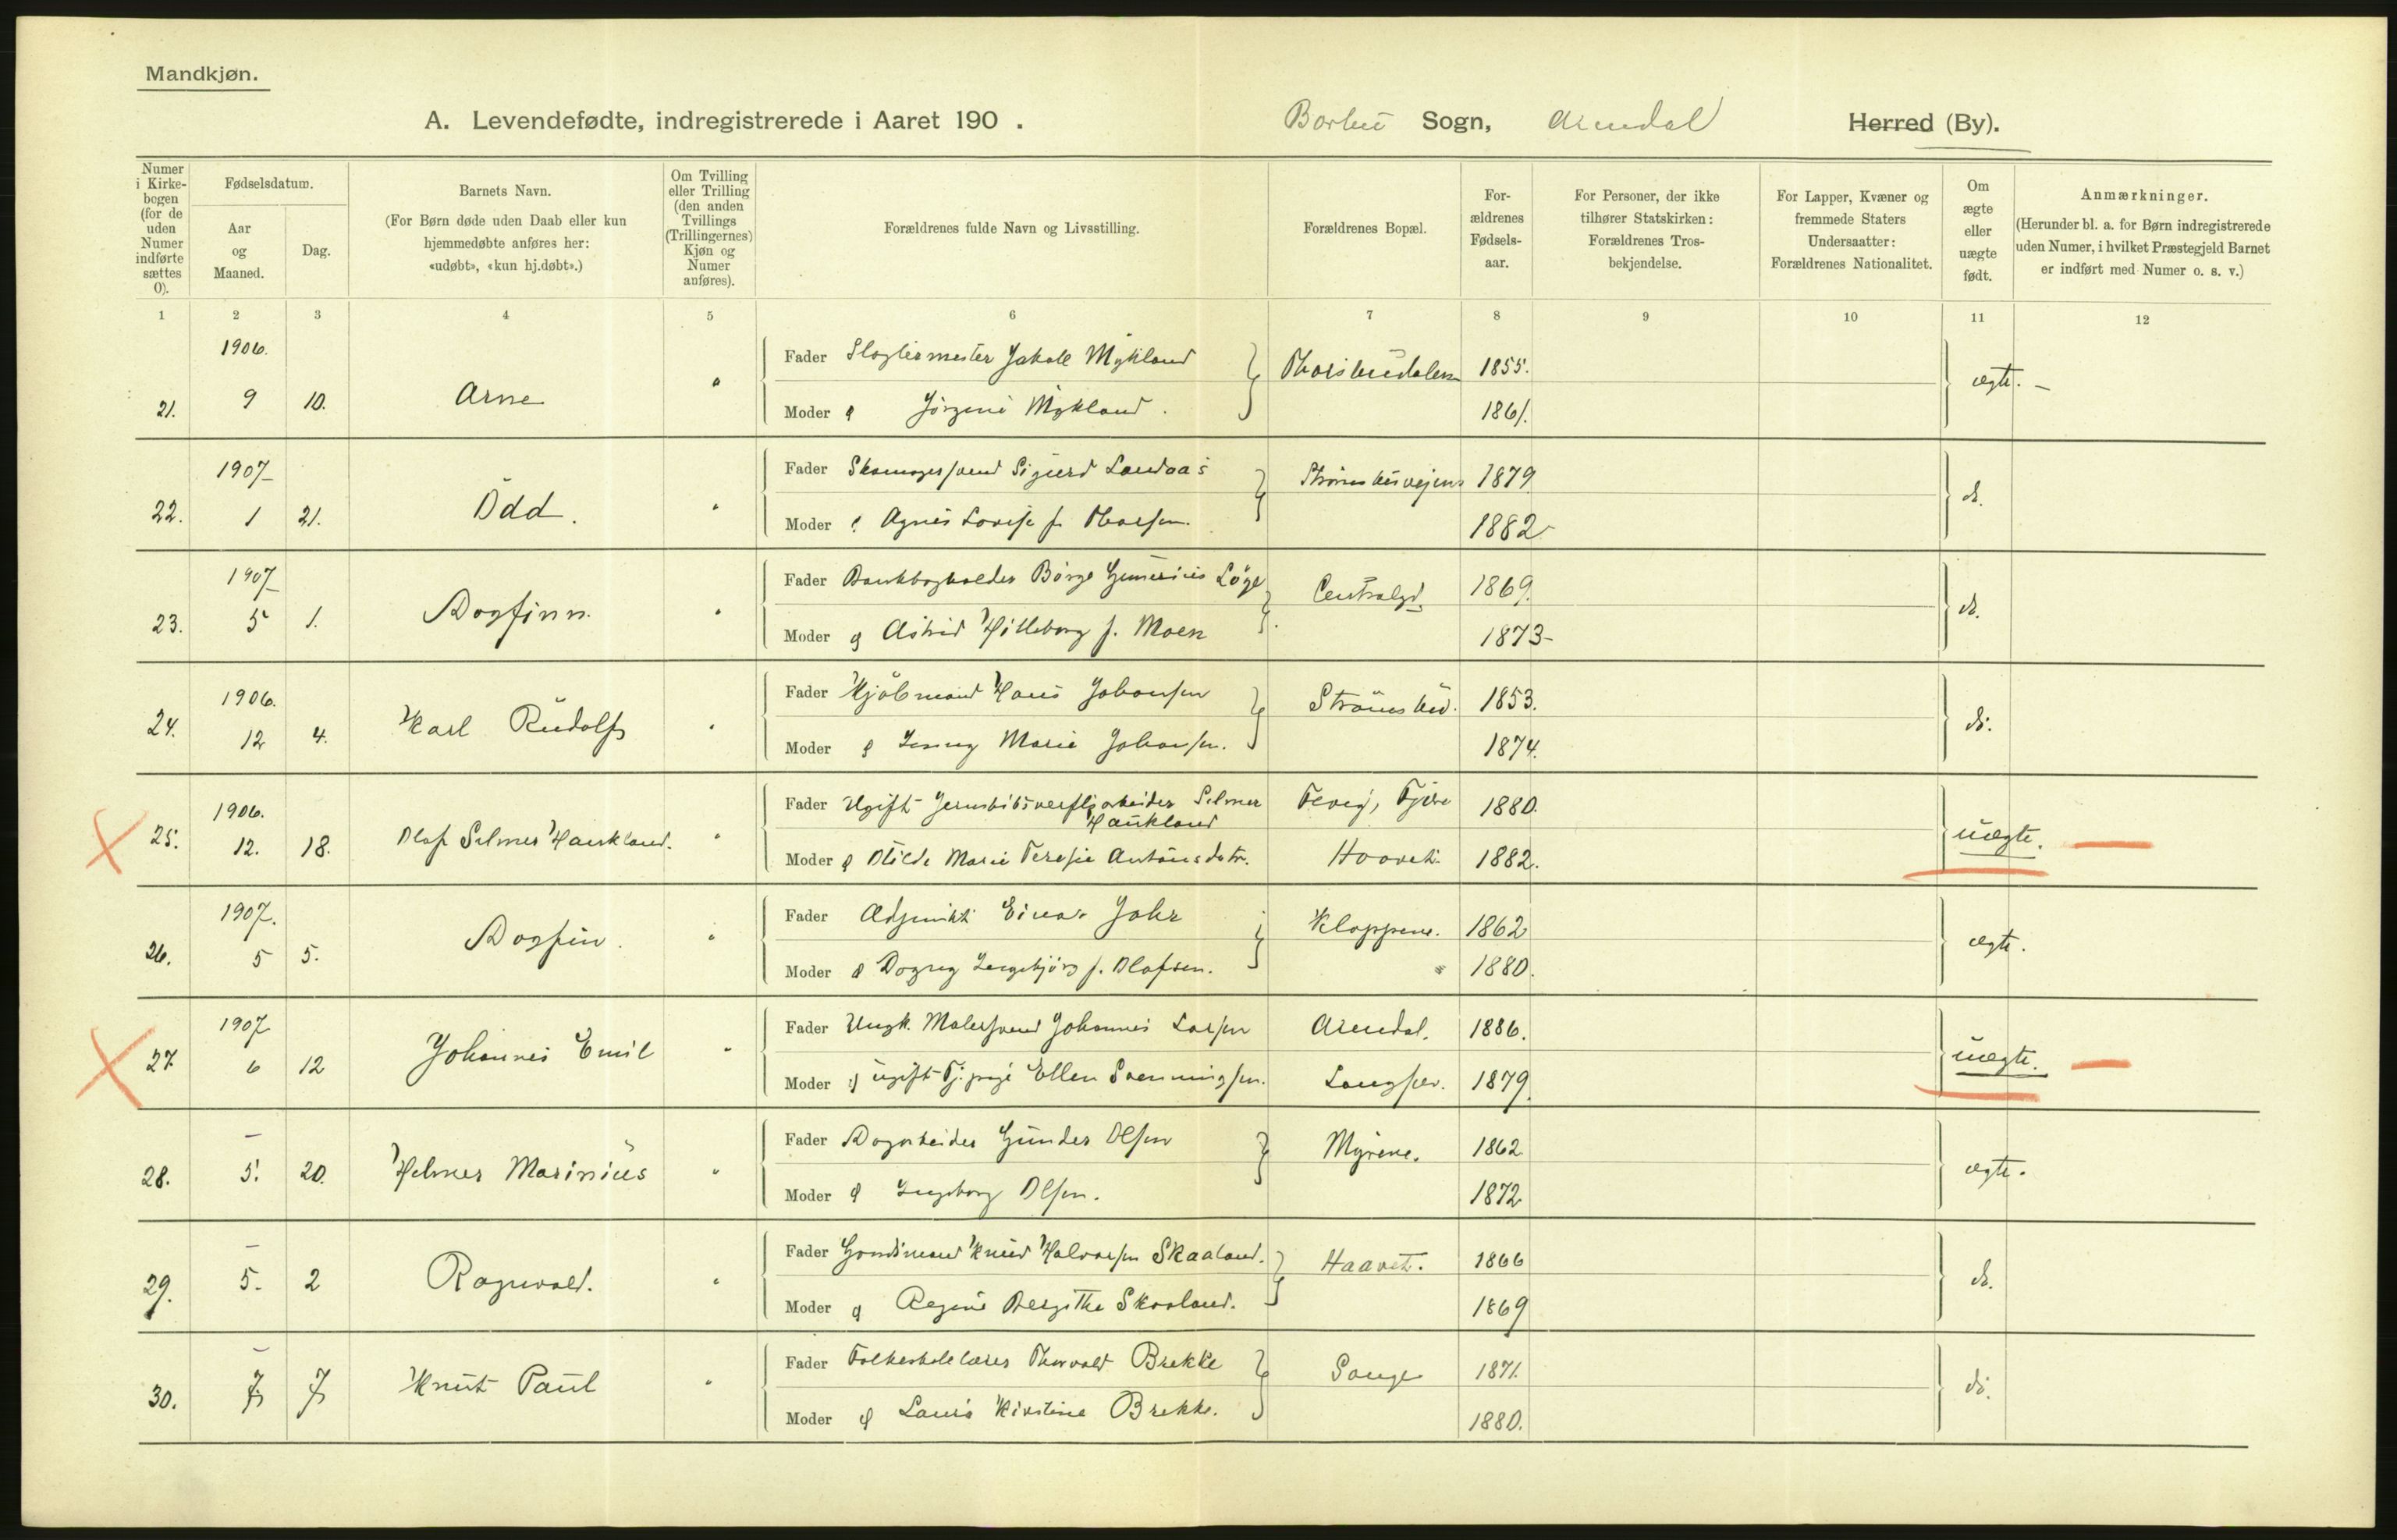 Mandkjøn.
A. Levendefødte, indregistrerede i Aaret 190 . Barbu Sogn, Arendal Herred (By).
Numer i Kirkebogen (for de uden Numer indførte sættes 0).
Fødselsdatum.
Aar og Maaned.
Dag.
Barnets Navn.
(For Børn døde uden Daab eller kun hjemmedøbte anføres her: «udøbt», «kun hj.døbt».)
Om Tvilling eller Trilling (den anden Tvillings (Trillingernes) Kjøn og Numer anføres).
Forældrenes fulde Navn og Livsstilling.
Forældrenes Bopæl.
Forældrenes Fødselsaar.
For Personer, der ikke tilhører Statskirken: Forældrenes Trosbekjendelse.
For Lapper, Kvæner og fremmede Staters Undersaatter: Forældrenes Nationalitet.
Om ægte eller uægte født.
Anmærkninger.
(Herunder bl. a. for Børn indregistrerede uden Numer, i hvilket Præstegjeld Barnet er indført med Numer o. s. v.)
1 2 3 4 5 6 7 8 9 10 11 12
1906.
21. 9 10. Arne "
Fader Slagtermester Jakob Mykland Thorsbudalen 1855.
Moder Jørgine Mykland. 1861.
ægte. –
1907
22. 1 21. Odd. "
Fader Skomagersvend Sigurd Landaas 1879
Moder Agnes Lovise f. Thorsen. 1882
do.
1907
23. 5 1. Dagfinn. "
Fader Bankbogholder Børge Løge Centralgd. 1869.
Moder og Astrid Hilleborg f. Moen 1873
do.
1906.
24. 12 4. Karl Rudolf "
Fader Kjøbmand Hans Johansen Strømsbu. 1853.
Moder og Jenny Marie Johansen. 1874.
do.
1906.
25. 12. 18. Olaf Selmer Haukland. "
Fader Ugift Selmer Haukland Fevig, Fjære 1880.
Moder og Otilde Marie Teresie Antonsdatr. Haavet. 1882.
uægte.
1907.
26. 5 5. Dagfin. "
Fader Adjunkt Einar Jahr Kloppene. 1862
Moder og Dagny Ingebjørg f. Olafsen. " 1880.
ægte.
1907
27. 6 12 Johannes Emil "
Fader Ungk. Malersvend Johannes Larsen Arendal. 1886.
Moder og ugift Tj.pige Ellen Svenningsen. Langsev. 1879.
uægte.
–
28. 5. 20. Helmer Marinius "
Fader Dagarbeider Gunder Olsen Myrene. 1862
Moder og Ingeborg Olsen. 1872
ægte.
–
29. 5. 2 Ragnvald. "
Fader Knud Halvorsen Skaaland. Haavet. 1866
Moder og Regine Bergithe Skaaland. 1869
do.
–
30. 7 7 Knut Paul "
Fader Folkeskolelærer Thorvald Brekke Songe 1871.
Moder og Laura Kirstine Brekke. 1880.
do.